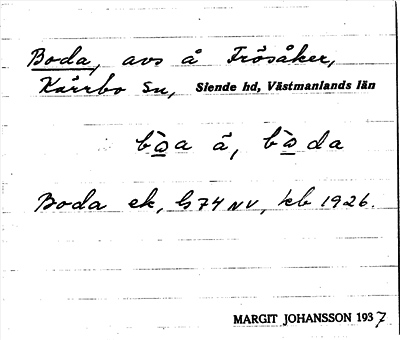 Boda, avs å Frösåker,
Kärrbo sn, Siende hd, Västmanlands län
bo̲a å, bo̲da
Boda ek, G74NV, kb 1926.
MARGIT JOHANSSON 1937